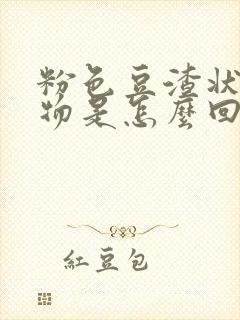 粉色豆渣状
物是怎麼回
紅豆包